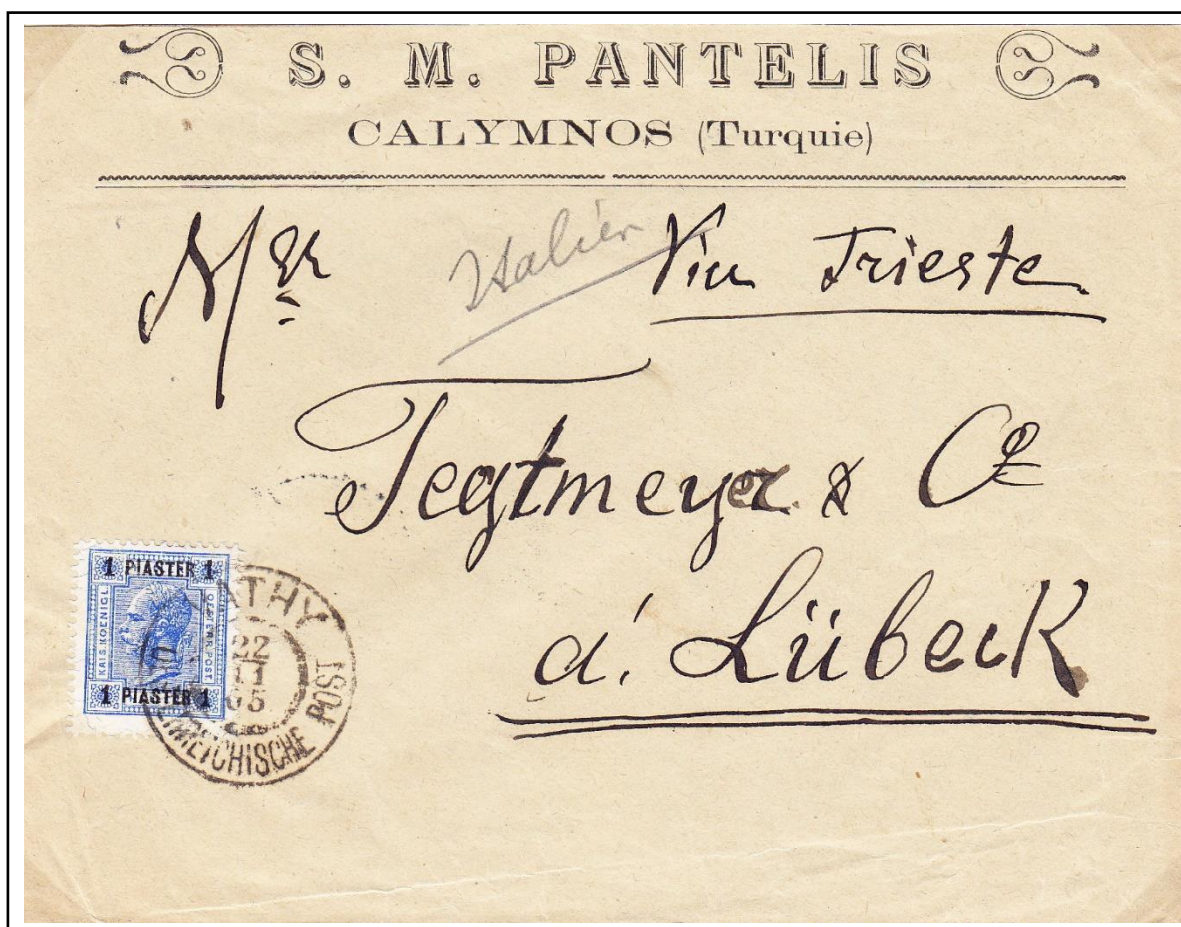 S. M. PANTELIS
CALYMNOS (Turquie)
Italien
Via Trieste
Tegtmeyer & Co
à. Lübeck
1 PIASTER 1
KAIS. KOENIGL.
OESTERR. POST
1 PIASTER 1
VATHY
22
11
05
POST